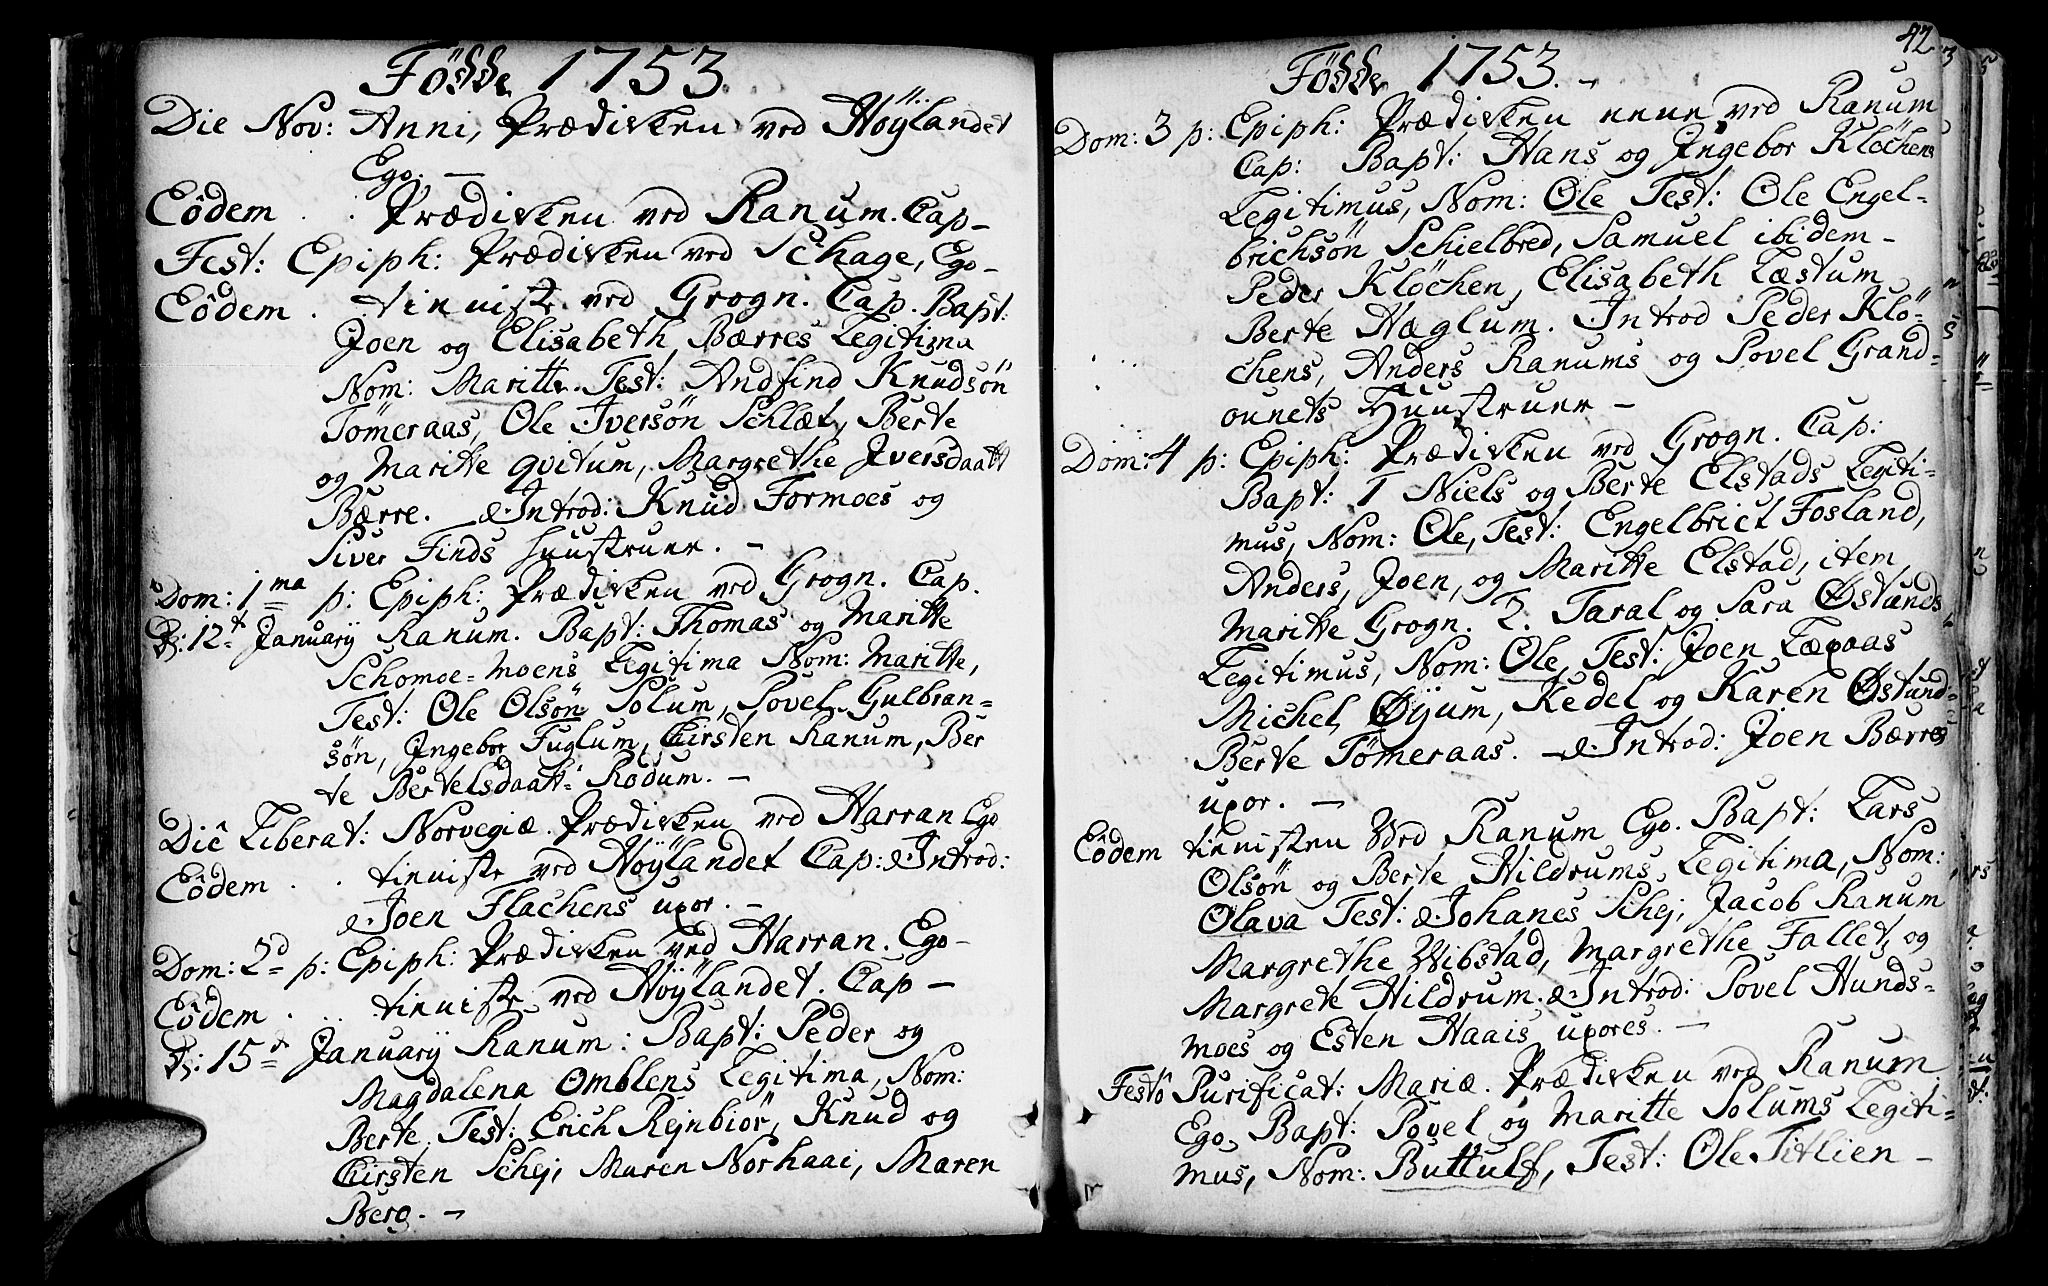 Födde 1753
Die Nov: Anni, Prædicken ved Høÿlandet
Ego. —
Eôdem . . Prædicken ved Ranum. Cap–
Fest: Epiph: Prædicken ved Schage, Ego–
Eôdem . tieniste ved Grogn. Cap. Bapt:
Joen og Elisabeth Bærres Legitima
Nom: Maritte. Test: Andfind Knudsön
Tömeraas, Ole Iversön Schlæt, Berte
og Maritte qvitum, Margrethe Iversdaatt
Bærre. Introd: Knud Formoes og
Siver Finds Huustruer. —
Dom: 1ma p: Epiph: Prædicken ved Grogn. Cap.
D: 12t Januarÿ Ranum. Bapt: Thomas og Maritte
Schomoe-moens Legitima Nom: Maritte,
Test: Ole Olsön Solum, Povel Gulbran=
sön, Ingebor Fuglum, Cirsten Ranum, Ber
te Bertelsdaatt: Rödum. —
Diê Liberat: Norvegiæ. Prædicken ved Harran Ego
Eôdem . . tieniste ved Høÿlandet Cap: Introd:
Joen Flachens uxor. —
Dom: 2d p: Epiph: Prædicken ved Harran. Ego–
Eôdem . . . tieniste ved Høÿlandet. Cap —
D: 15d Januarÿ Ranum: Bapt: Peder og
Magdalena Omblens Legitima, Nom:
Berte, Test: Erich Rejnbiör, Knud og
Cirsten Schej, Maren Norhaai, Maren
Berg. —
42
Födde 1753. –
Dom: 3 p: Epiph: Prædicken nene ved Ranum
Cap: Bapt: Hans og Ingebor Klöchens
Legitimus, Nom: Ole Test: Ole Engel-
brichsön Schielbred, Samuel ibidem –
Peder Klöchen, Elisabeth Læstum
Berte Hæglum. Introd Peder Klö=
chens, Anders Ranums og Povel Grand-
ounets Huustruer —
Dom: 4 p: Epiph: Prædicken ved Grogn. Cap:
Bapt: 1 Niels og Berte Elstads Legiti=
mus, Nom: Ole, Test: Engelbrict Fosland,
Anders, Joen, og Maritte Elstad, item
Maritte Grogn. 2. Taral og Sara Østunds
Legitimus, Nom: Ole, Test: Joen Læxaas
Michel, Øÿum, Kedel og Karen Østund=
Berte Tömeraas. — Introd: Joen Bærres
uxor. —
Eôdem tienisten Vved Ranum Ego. Bapt: Lars
Olsön og Berte Hildrums Legitima, Nom:
Olava Test: Johanes Schej, Jacob Ranum
Margrethe Wibstad, Margrethe Fallet, og
Margrete Hildrum. Introd: Povel Hunds=
moes og Esten Haais uxores. —
Festô Purificat: Mariæ. Prædicken ved Ranum
Ego. Bapt: Povel og Maritte Solums Legiti=
mus, Nom: Buttulf, Test: Ole Titlien –